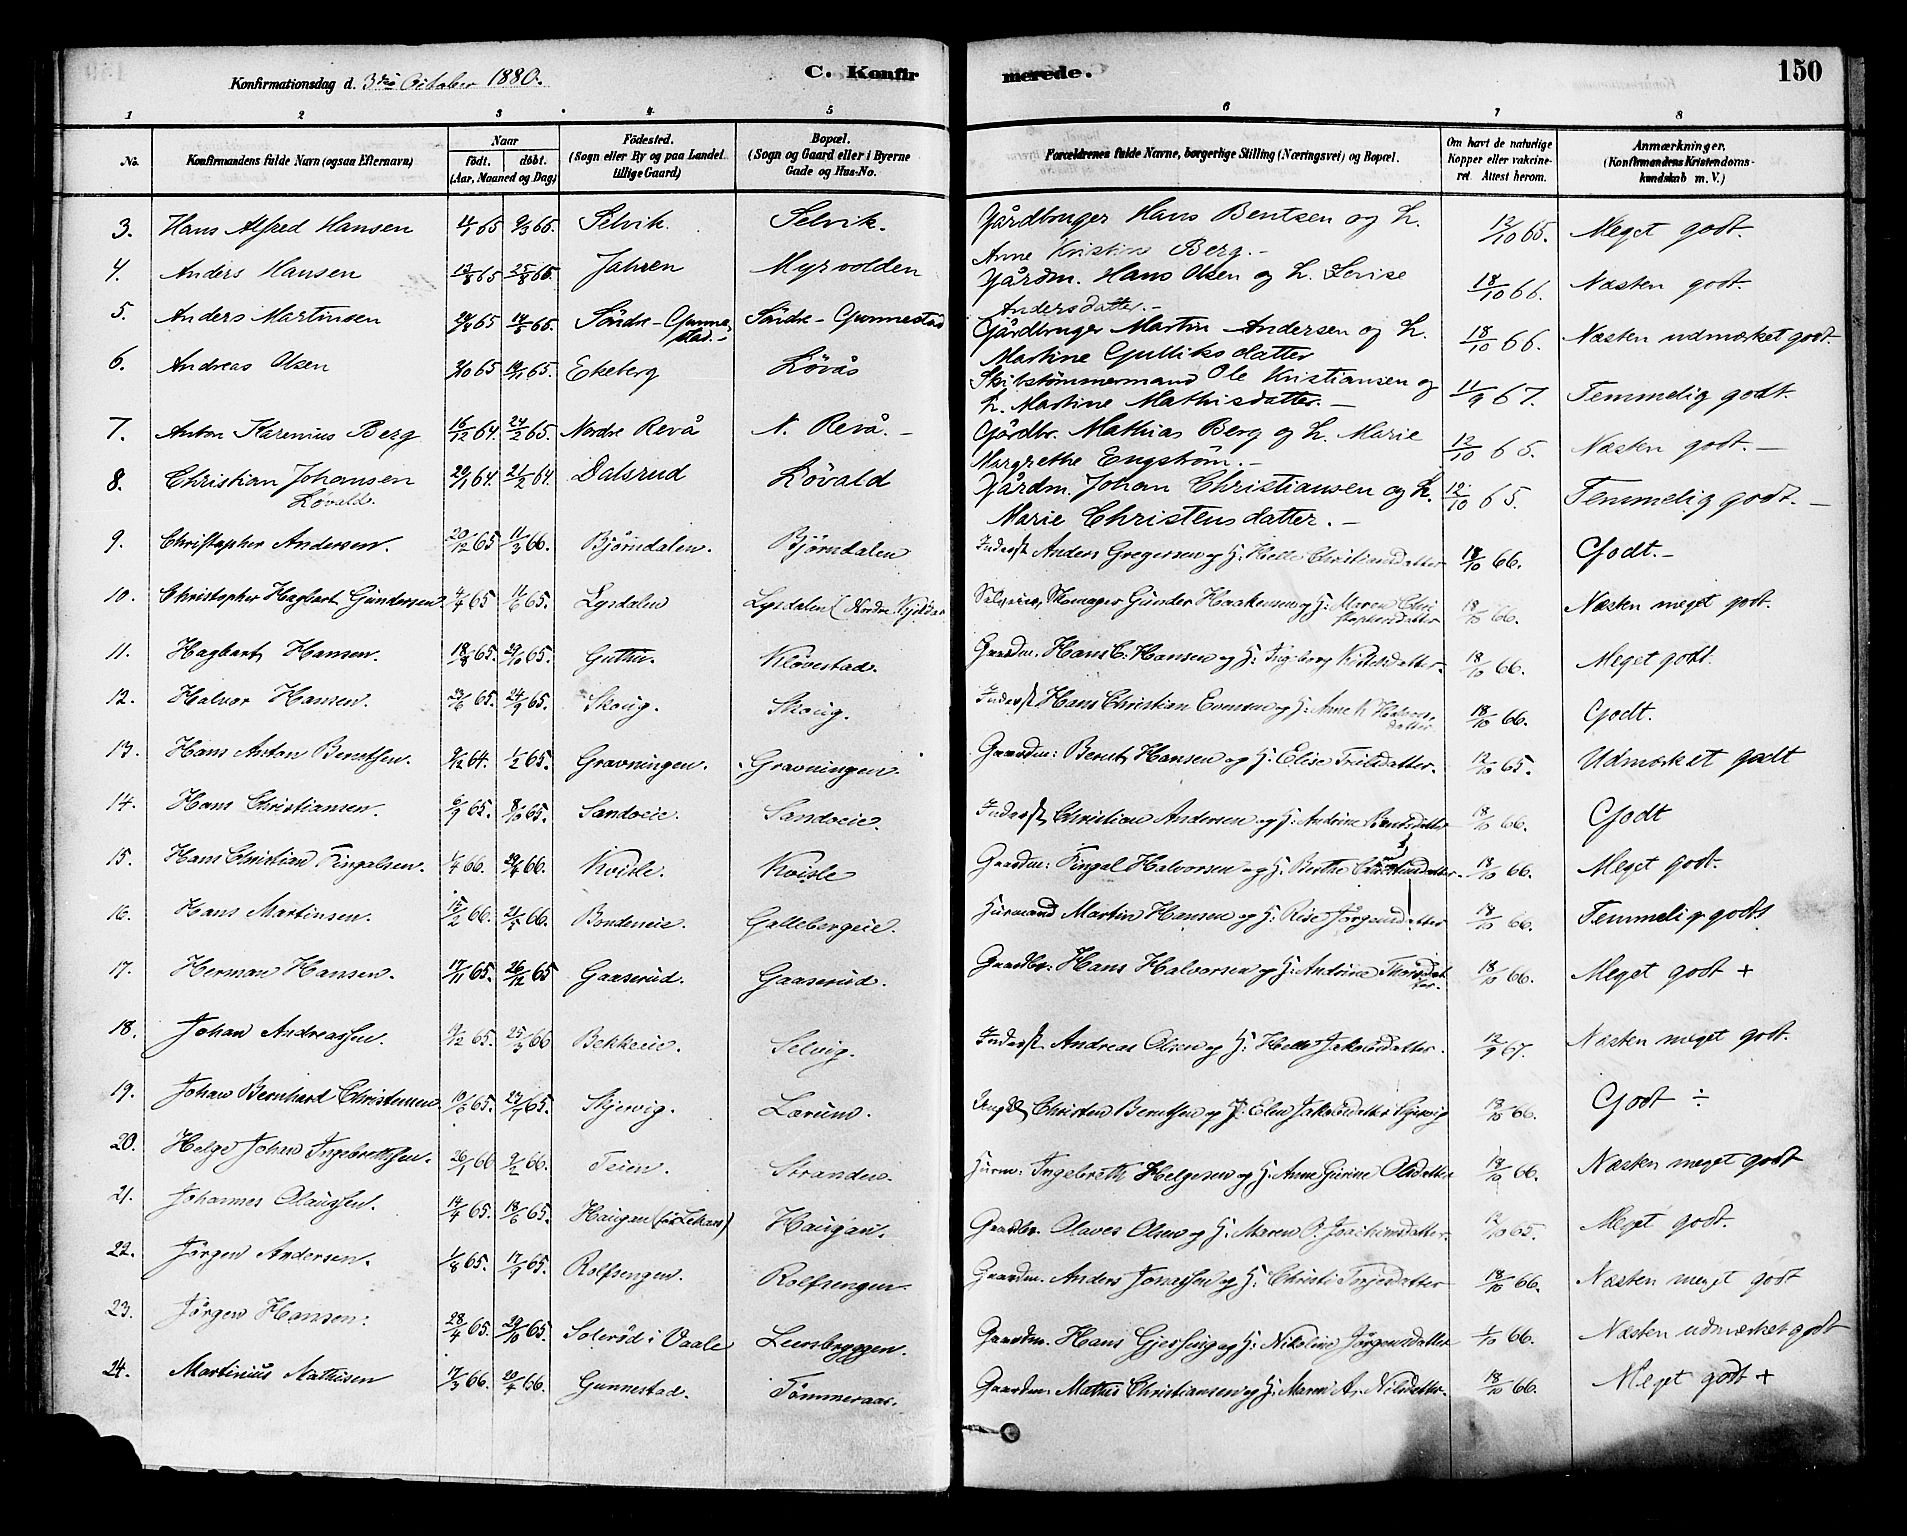 Konfirmationsdag d. 3die October 1880.
C. Konfirmerede.
150
1 2 3 4 5 6 7 8
No. Konfirmandens fulde Navn (ogsaa Efternavn) Naar födt. döbt. (Aar, Maaned og Dag) Födested. (Sogn eller By og paa Landet tillige Gaard) Bopæl. (Sogn og Gaard eller i Byerne Gade og Hus-No. Forældrenes fulde Navne, borgerlige Stilling (Næringsvei) og Bopæl. Om havt de naturlige Kopper eller vakcineret. Attest herom. Anmærkninger, (Konfirmandens Kristendomskundskab m. V.)
3. Hans Alfred Hansen 65 9/3 65. Selvik. Selvik. Gårdbruger Hans Bentsen og h. Anne Kristine Berg.- 12/10 65. Meget godt.
4. Anders Hansen 65 25/8 65. Jahren Myrvolden Gårdm. Hans Olsen og h. Lovise Andersdatter.- 18/10 66. Næsten godt.
5. Anders Martinsen 65 14/5 65. Söndre-Gunnestad.- Söndre-Gunnestad Gårdbruger Martin Andersen og h. Martine Gulliksdatter 18/10 66. Næsten udmærket godt.
6. Andreas Olsen 65 65. Ekeberg Lövås Skibstömmermand Ole Kristiansen og h. Martine Mathisdatter.- 11/9 67. Temmelig godt.
7. Anton Karenius Berg 16/12 64. 24/2 65. Nordre Revå N. Revå.- Gårdbr. Mathias Berg og h. Marie Margrethe Engström.- 12/10 65. Næsten godt.-
8. Christian Johansen Lövald. 29/1 64 21/2 64. Dalsrud Lövald Gårdm. Johan Christiansen og h. Marie Christensdatter.- 12/10 65. Temmelig godt.-
9. Christopher Andersen. 20/12 65 11/3 66. Björndalen. Björndalen Inderst Anders Gregersen og H: Helle Christiansdatter 18/10 66. Godt.-
10. Christopher Hagbart Gundersen 4/4 65 11/6 65. Lysdalen Lysdalen (Nordre Skomager Gunder Haakensen og H: Maren Christophersdatter 18/10 66. Næsten meget godt.
11. Hagbart Hansen. 18/8 65. 29/10 65. Guthu. Klövestad. Gaardm. Hans C. Hansen og H: Ingeborg 18/10 66. Meget godt.
12. Halvor Hansen. 65. 24/9 65. Skoug. Skoug. Inderst Hans Christian Evensen og H: Anne K Halvorsdatter 18/10 66. Godt.
13. Hans Anton Berntsen. 9/12 64. 1/2 65. Gravningen. Gravningen. Gaardm: Bernt Hansen og H: Elise 12/10 65. Udmærket godt
14. Hans Christiansen. 6/9 65. 8/10 65. Sandveie. Sandveie. Inderst Christian Andersen og H: Andrine Berntsdatter 18/10 66. Godt
15. Hans Christian Fingalsen. 1/4 66. 29/4 66. Kvisle. Kvisle Gaardm: Fingal Halvorsen og H. Berthe 18/10 66. Meget godt.
16. Hans Martinsen. 15/2 66. 21/5 66. Bondeneie. Gallebergeie. Husmand Martin Hansen og H: Rise Jörgensdatter 18/10 66. Temmelig godt
17. Herman Hansen. 17/11 65. 26/12 65 Gaaserud. Gaaserud. Gaardbr. Hans Halvorsen og H: Andrine Thorsdatter. 18/10 66. Meget godt +
18. Johan Andreassen. 9/12 65. 25/3 66 Bekkeie. Selvig. Inderst Andreas Olsen og H: Helle Jakobsdatter. 12/9 67. Næsten meget godt.
19. Johan Bernhard Christensen 10/6 65. 23/7 65. Skjervig. Lærum. Christen Berntsen og Elen Jakobsdatter Skjervig 18/10 66. Godt ÷
20. Helge Johan Ingebretsen. 26/1 66 9/2 66. Teien. Stranden. Husm. Ingebreth Helgesen og H: Anne Gurine Olsdatter 18/10 66. Næsten meget godt
21. Johannes Olaussen. 14/4 65. 18/6 65. Haugan Haugan. Gaardbr. Olaves Olsen og H: Maren O. Joachimsdatter. 12/10 65. Meget godt.
22. Jörgen Andersen. 1/8 65. 17/9 65. Rolfsengen. Rolfsengen. Gaardm. Anders og H: Christi Torjesdatter 18/10 66. Næsten meget godt
23. Jörgen Hansen. 28/4 65. 29/10 65. Soleröd i Vaale Leersbryggen. Gaardm. Hans Gjessing og H: Nikoline Jörgensdatter 1/10 66. Næsten udmærket godt
24. Martinius Mathisen 17/3 66. 20/4 66. Gunnestad. Tömmeraas. Gaardm. Mathis Christiansen og H. Maren A. Nilsdatter. 18/10 66. Meget godt +